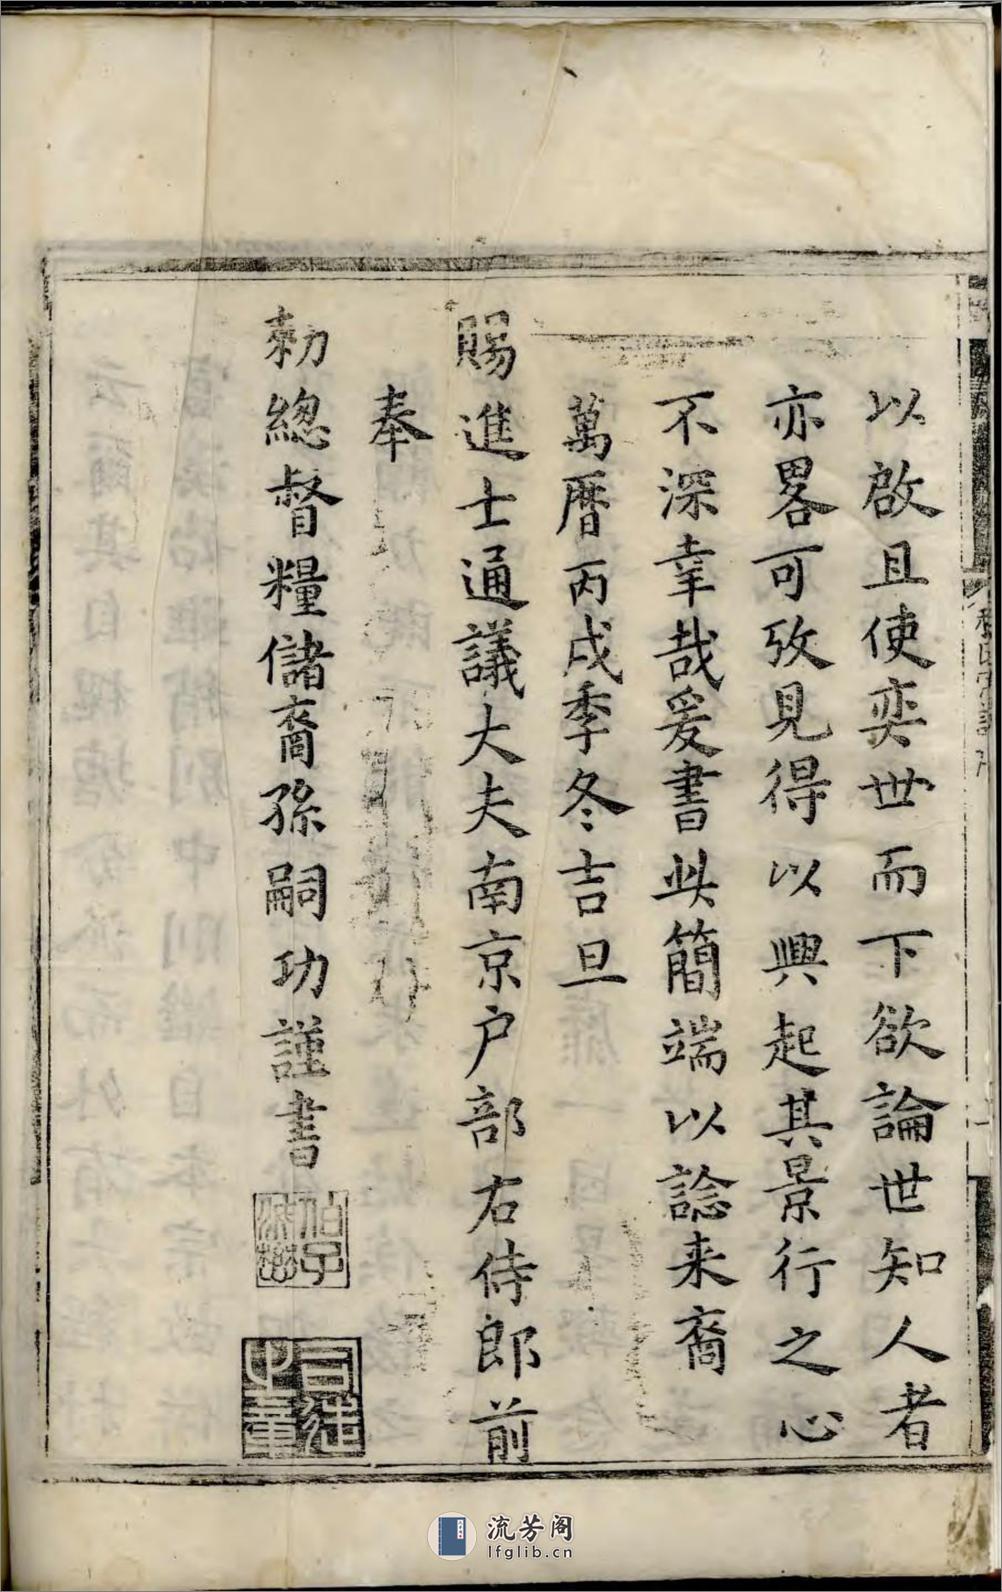 以啟且使奕世而下欲論世知人者
亦畧可攷見得以興起其景行之心
不深幸哉爰書此簡端以諗来裔
萬曆丙戌季冬吉旦
賜進士通議大夫南京户部右侍郎前
奉
勑總督糧儲裔孫嗣功謹書
司徒中章
流芳阁
lfglib.cn